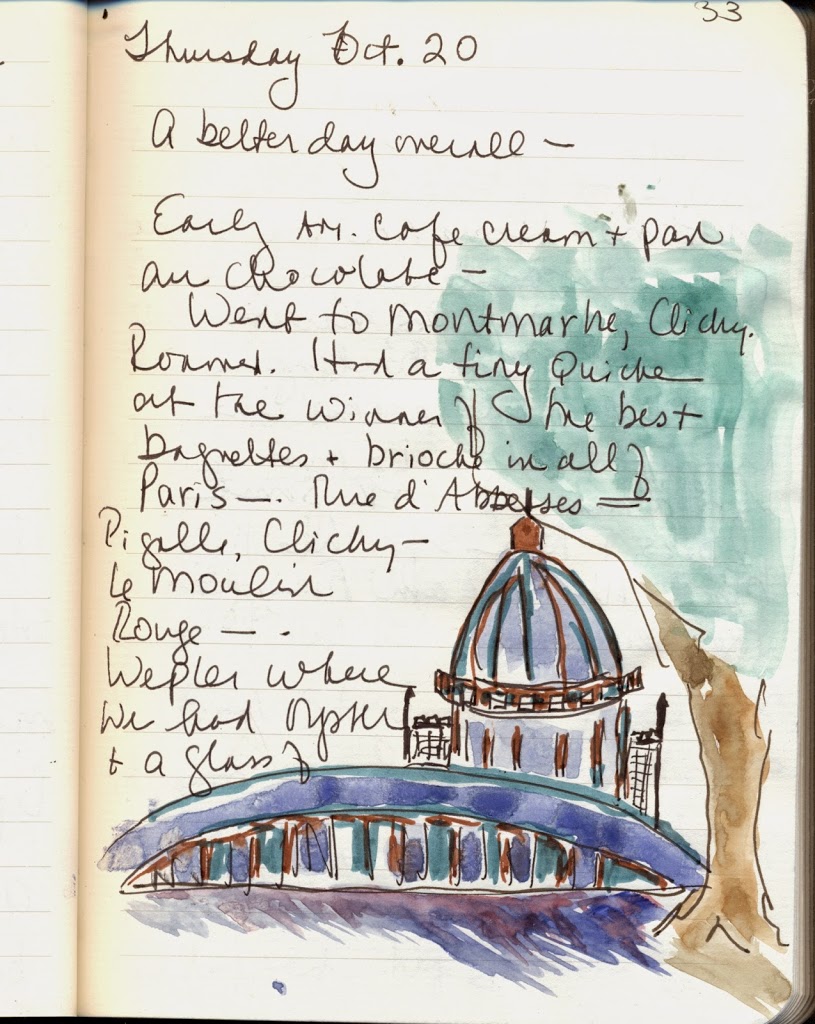 33
Thursday Oct. 20
A better day overall —
Early AM. Cafe cream + pan
au chocolate —
Went to Montmartre, Clichy.
Roamed. Had a tiny Quiche
at the winner of the best
baguettes + brioche in all of
Paris —. Rue d'Abbesses =
Pigalle, Clichy —
Le Moulin
Rouge — .
Wepler where
We had Oyster
+ a glass of